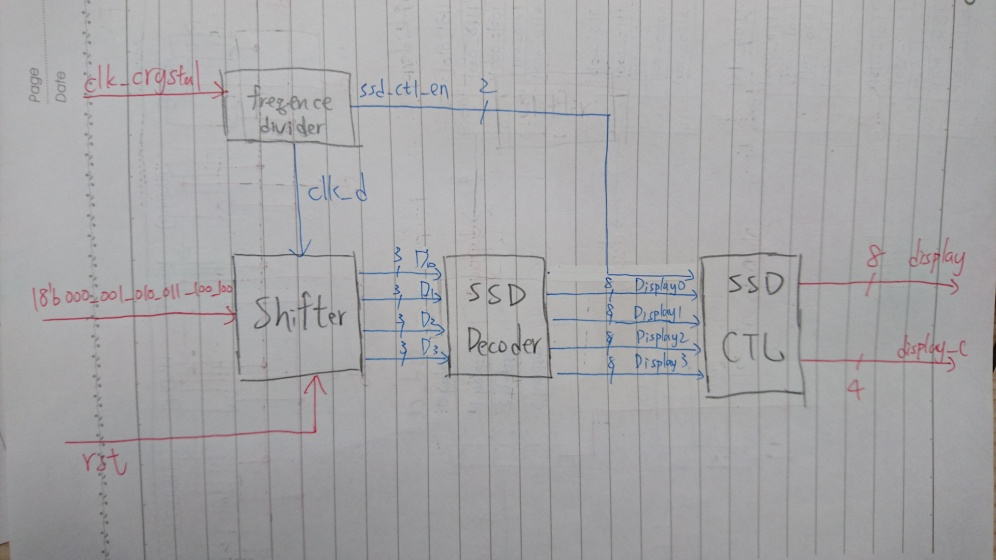 Page
Date
clk_crystal
frezence
divider
ssd_ctl_en 2
clk_d
18'b 000_001_010_011_100_100
Shifter
rst
3 D0
3 D1
3 D2
3 D3
SSD
Decoder
8 Display0
8 Display1
8 Display2
8 Display3
SSD
CTL
8 display
display_c
4